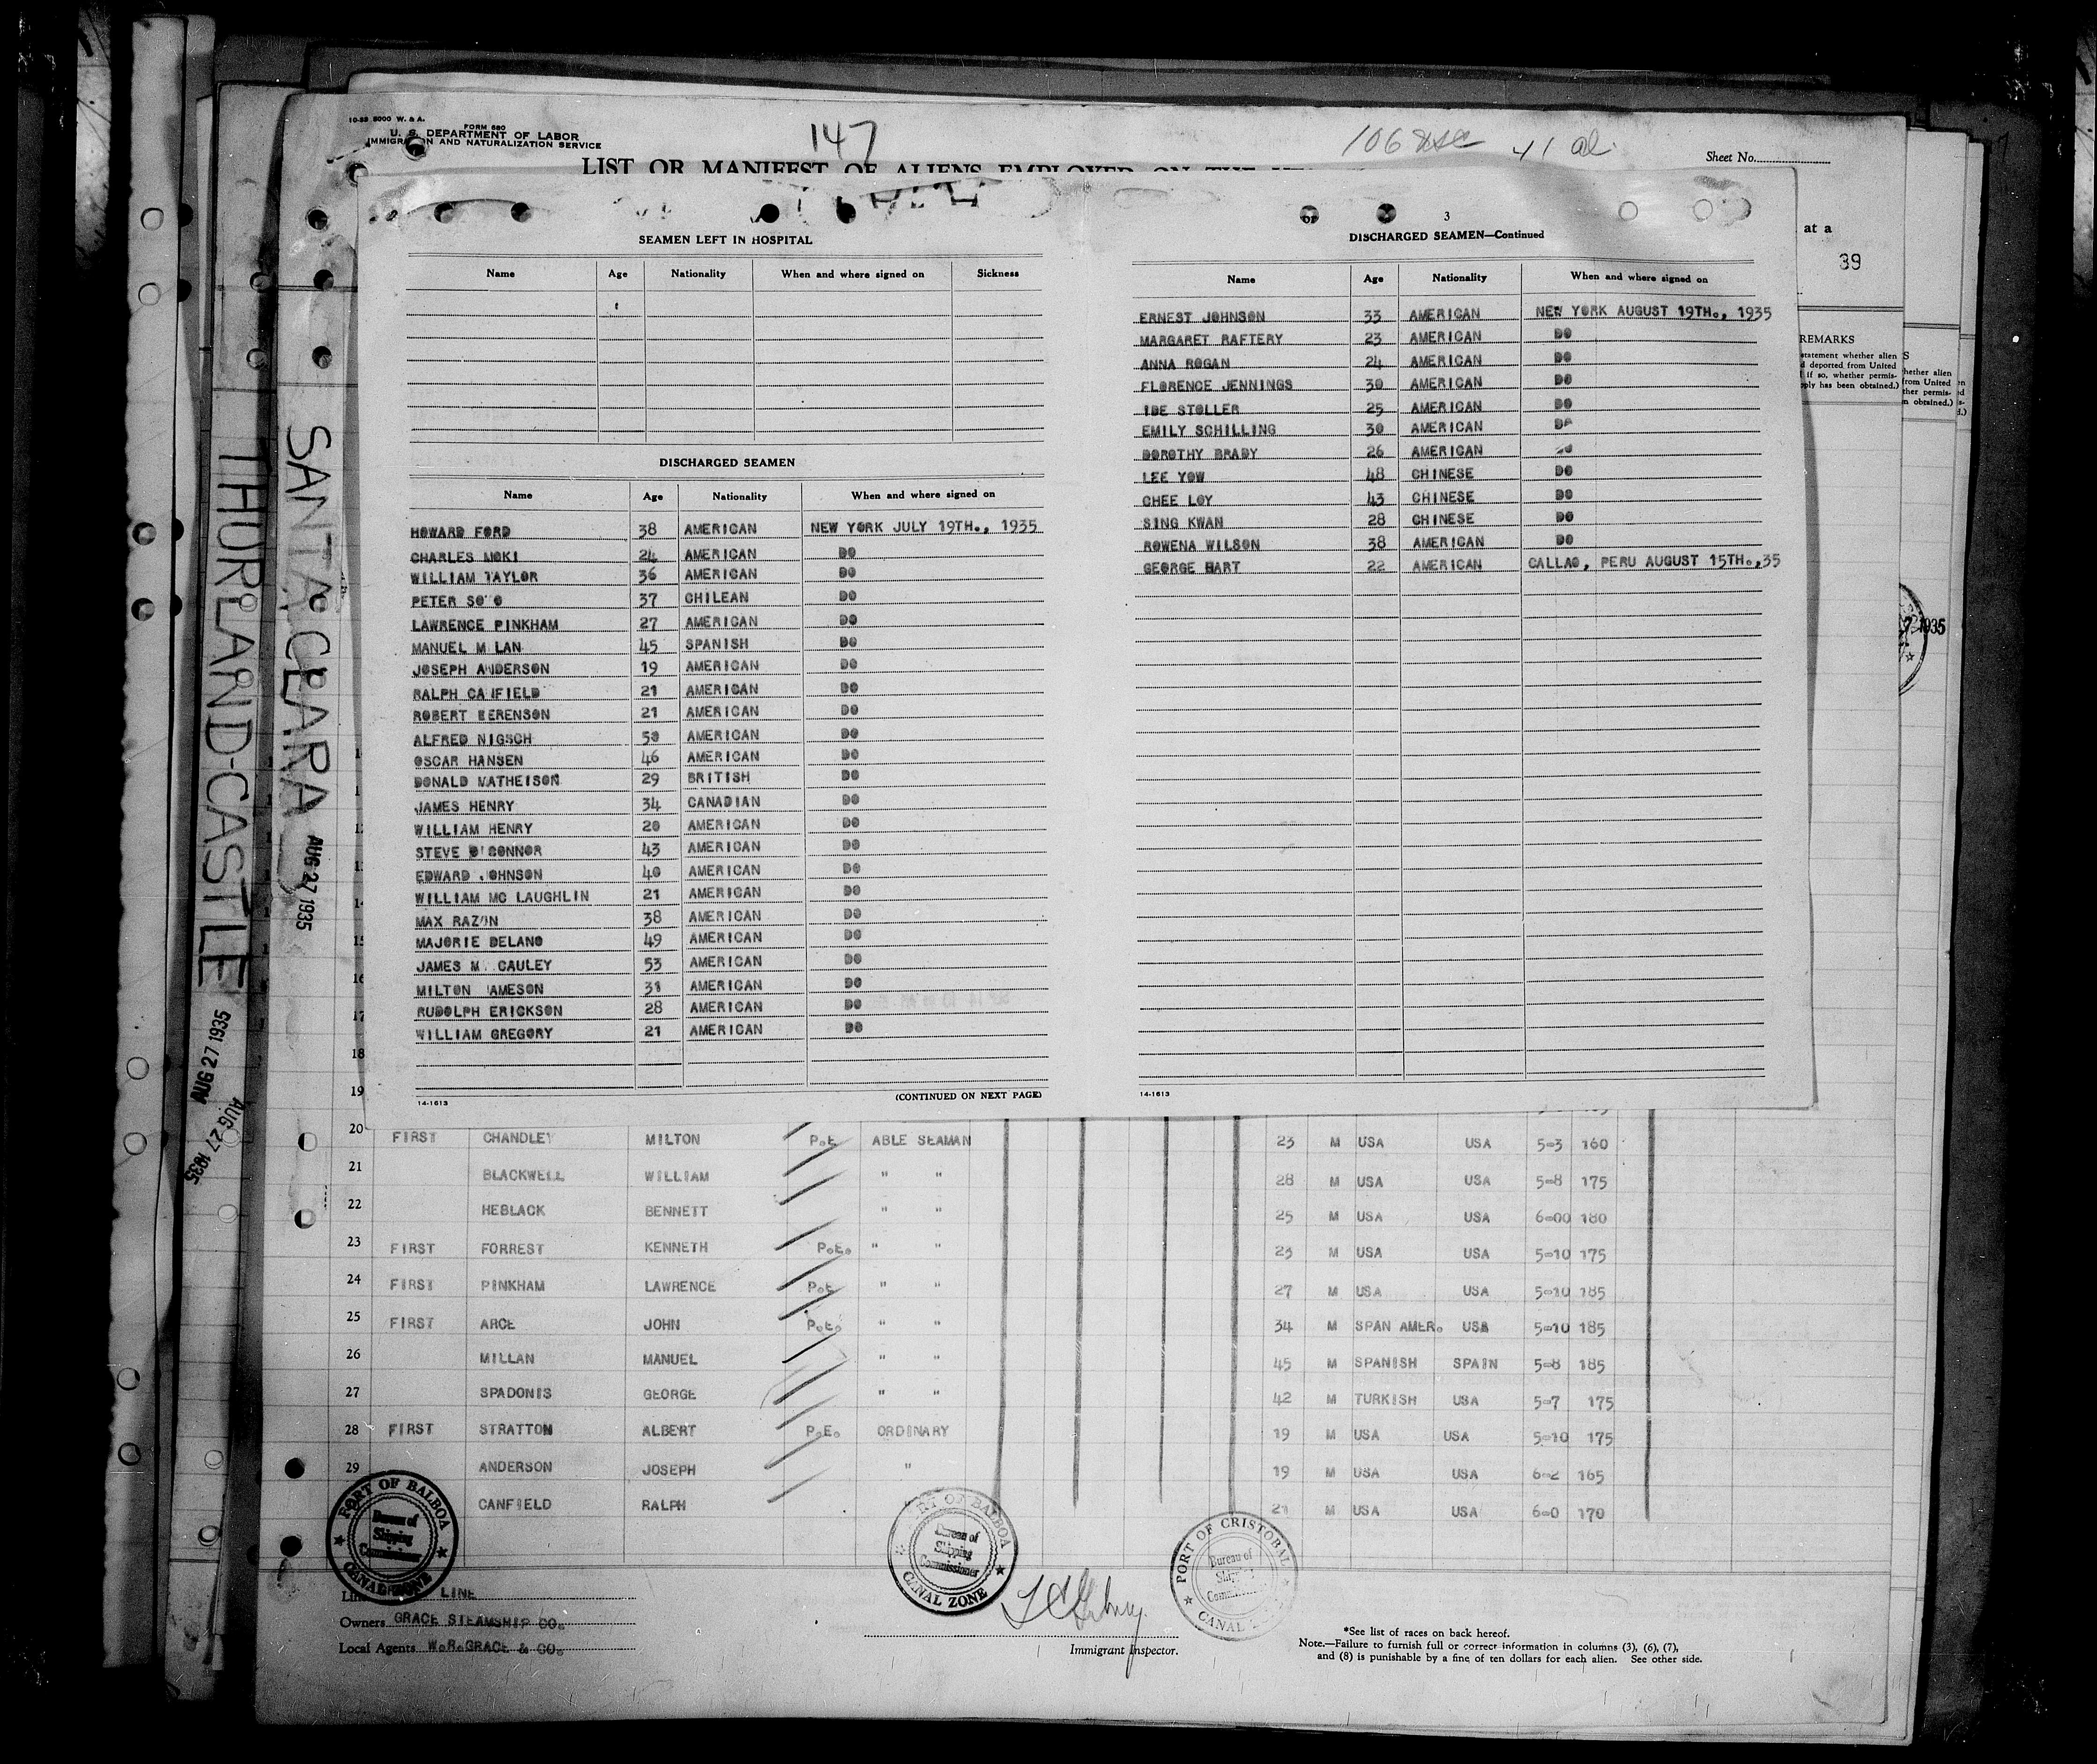 10-33 5000 W. & A.
FORM 680
U. S. DEPARTMENT OF LABOR
IMMIGRATION AND NATURALIZATION SERVICE
147
106 41 al.
Sheet No.
LIST OR MANIFEST OF ALIENS EMPLOYED ON THE
at a
39
REMARKS
statement whether alien
d deported from United
if so, whether permis-
ply has been obtained.)
S
hether alien
from United
ther permis-
n obtained.)
SANTA CLARA
AUG 27 1935
THURLAND-CASTLE
AUG 27 1935
AUG 27 1935
7 1935
SEAMEN LEFT IN HOSPITAL
Name Age Nationality When and where signed on Sickness
DISCHARGED SEAMEN
Name Age Nationality When and where signed on
HOWARD FORD 38 AMERICAN NEW YORK JULY 19TH., 1935
CHARLES MOKI 24 AMERICAN DO
WILLIAM TAYLOR 36 AMERICAN DO
PETER 37 CHILEAN DO
LAWRENCE PINKHAM 27 AMERICAN DO
MANUEL M LAN 45 SPANISH DO
JOSEPH ANDERSON 19 AMERICAN DO
RALPH CANFIELD 21 AMERICAN DO
ROBERT BERENSON 21 AMERICAN DO
ALFRED NIGSCH 50 AMERICAN DO
OSCAR HANSEN 46 AMERICAN DO
DONALD MATHEISON 29 BRITISH DO
JAMES HENRY 34 CANADIAN DO
WILLIAM HENRY 20 AMERICAN DO
STEVE O'CONNOR 43 AMERICAN DO
EDWARD JOHNSON 40 AMERICAN DO
WILLIAM MC LAUGHLIN 21 AMERICAN DO
MAX RAZON 38 AMERICAN DO
MAJORIE DELANO 49 AMERICAN DO
JAMES M CAULEY 53 AMERICAN DO
MILTON JAMESON 31 AMERICAN DO
RUDOLPH ERICKSON 28 AMERICAN DO
WILLIAM GREGORY 21 AMERICAN DO
14-1613
(CONTINUED ON NEXT PAGE)
3
DISCHARGED SEAMEN—Continued
Name Age Nationality When and where signed on
ERNEST JOHNSON 33 AMERICAN NEW YORK AUGUST 19TH., 1935
MARGARET RAFTERY 23 AMERICAN DO
ANNA ROGAN 24 AMERICAN DO
FLORENCE JENNINGS 30 AMERICAN DO
IDE STOLLER 25 AMERICAN DO
EMILY SCHILLING 30 AMERICAN DO
DOROTHY BRADY 26 AMERICAN DO
LEE YOW 48 CHINESE DO
CHEE LOY 43 CHINESE DO
SING KWAN 28 CHINESE DO
ROWENA WILSON 38 AMERICAN DO
GEORGE HART 22 AMERICAN CALLAO, PERU AUGUST 15TH.,35
14-1613
18
19
20 FIRST CHANDLEY MILTON P.E. ABLE SEAMAN 23 M USA USA 5-3 160
21 BLACKWELL WILLIAM " " 28 M USA USA 5-8 175
22 HEBLACK BENNETT " " 25 M USA USA 6-00 180
23 FIRST FORREST KENNETH P.E. " " 23 M USA USA 5-10 175
24 FIRST PINKHAM LAWRENCE P.E. " " 27 M USA USA 5-10 185
25 FIRST ARCE JOHN P.E. " " 34 M SPAN AMER. USA 5-10 185
26 MILLAN MANUEL " " 45 M SPANISH SPAIN 5-8 185
27 SPADONIS GEORGE " " 42 M TURKISH USA 5-7 175
28 FIRST STRATTON ALBERT P.E. ORDINARY 19 M USA USA 5-10 175
29 ANDERSON JOSEPH " 19 M USA USA 6-2 165
CANFIELD RALPH 21 M USA USA 6-0 170
PORT OF BALBOA
Bureau of
Shipping
Commissioner
CANAL ZONE
PORT OF BALBOA
Bureau of
Shipping
Commissioner
CANAL ZONE
PORT OF CRISTOBAL
Bureau of
CANAL
LINE
Owners GRACE STEAMSHIP CO.
Local Agents W.R.GRACE & CO.
Immigrant Inspector.
*See list of races on back hereof.
Note.—Failure to furnish full or correct information in columns (3), (6), (7),
and (8) is punishable by a fine of ten dollars for each alien. See other side.